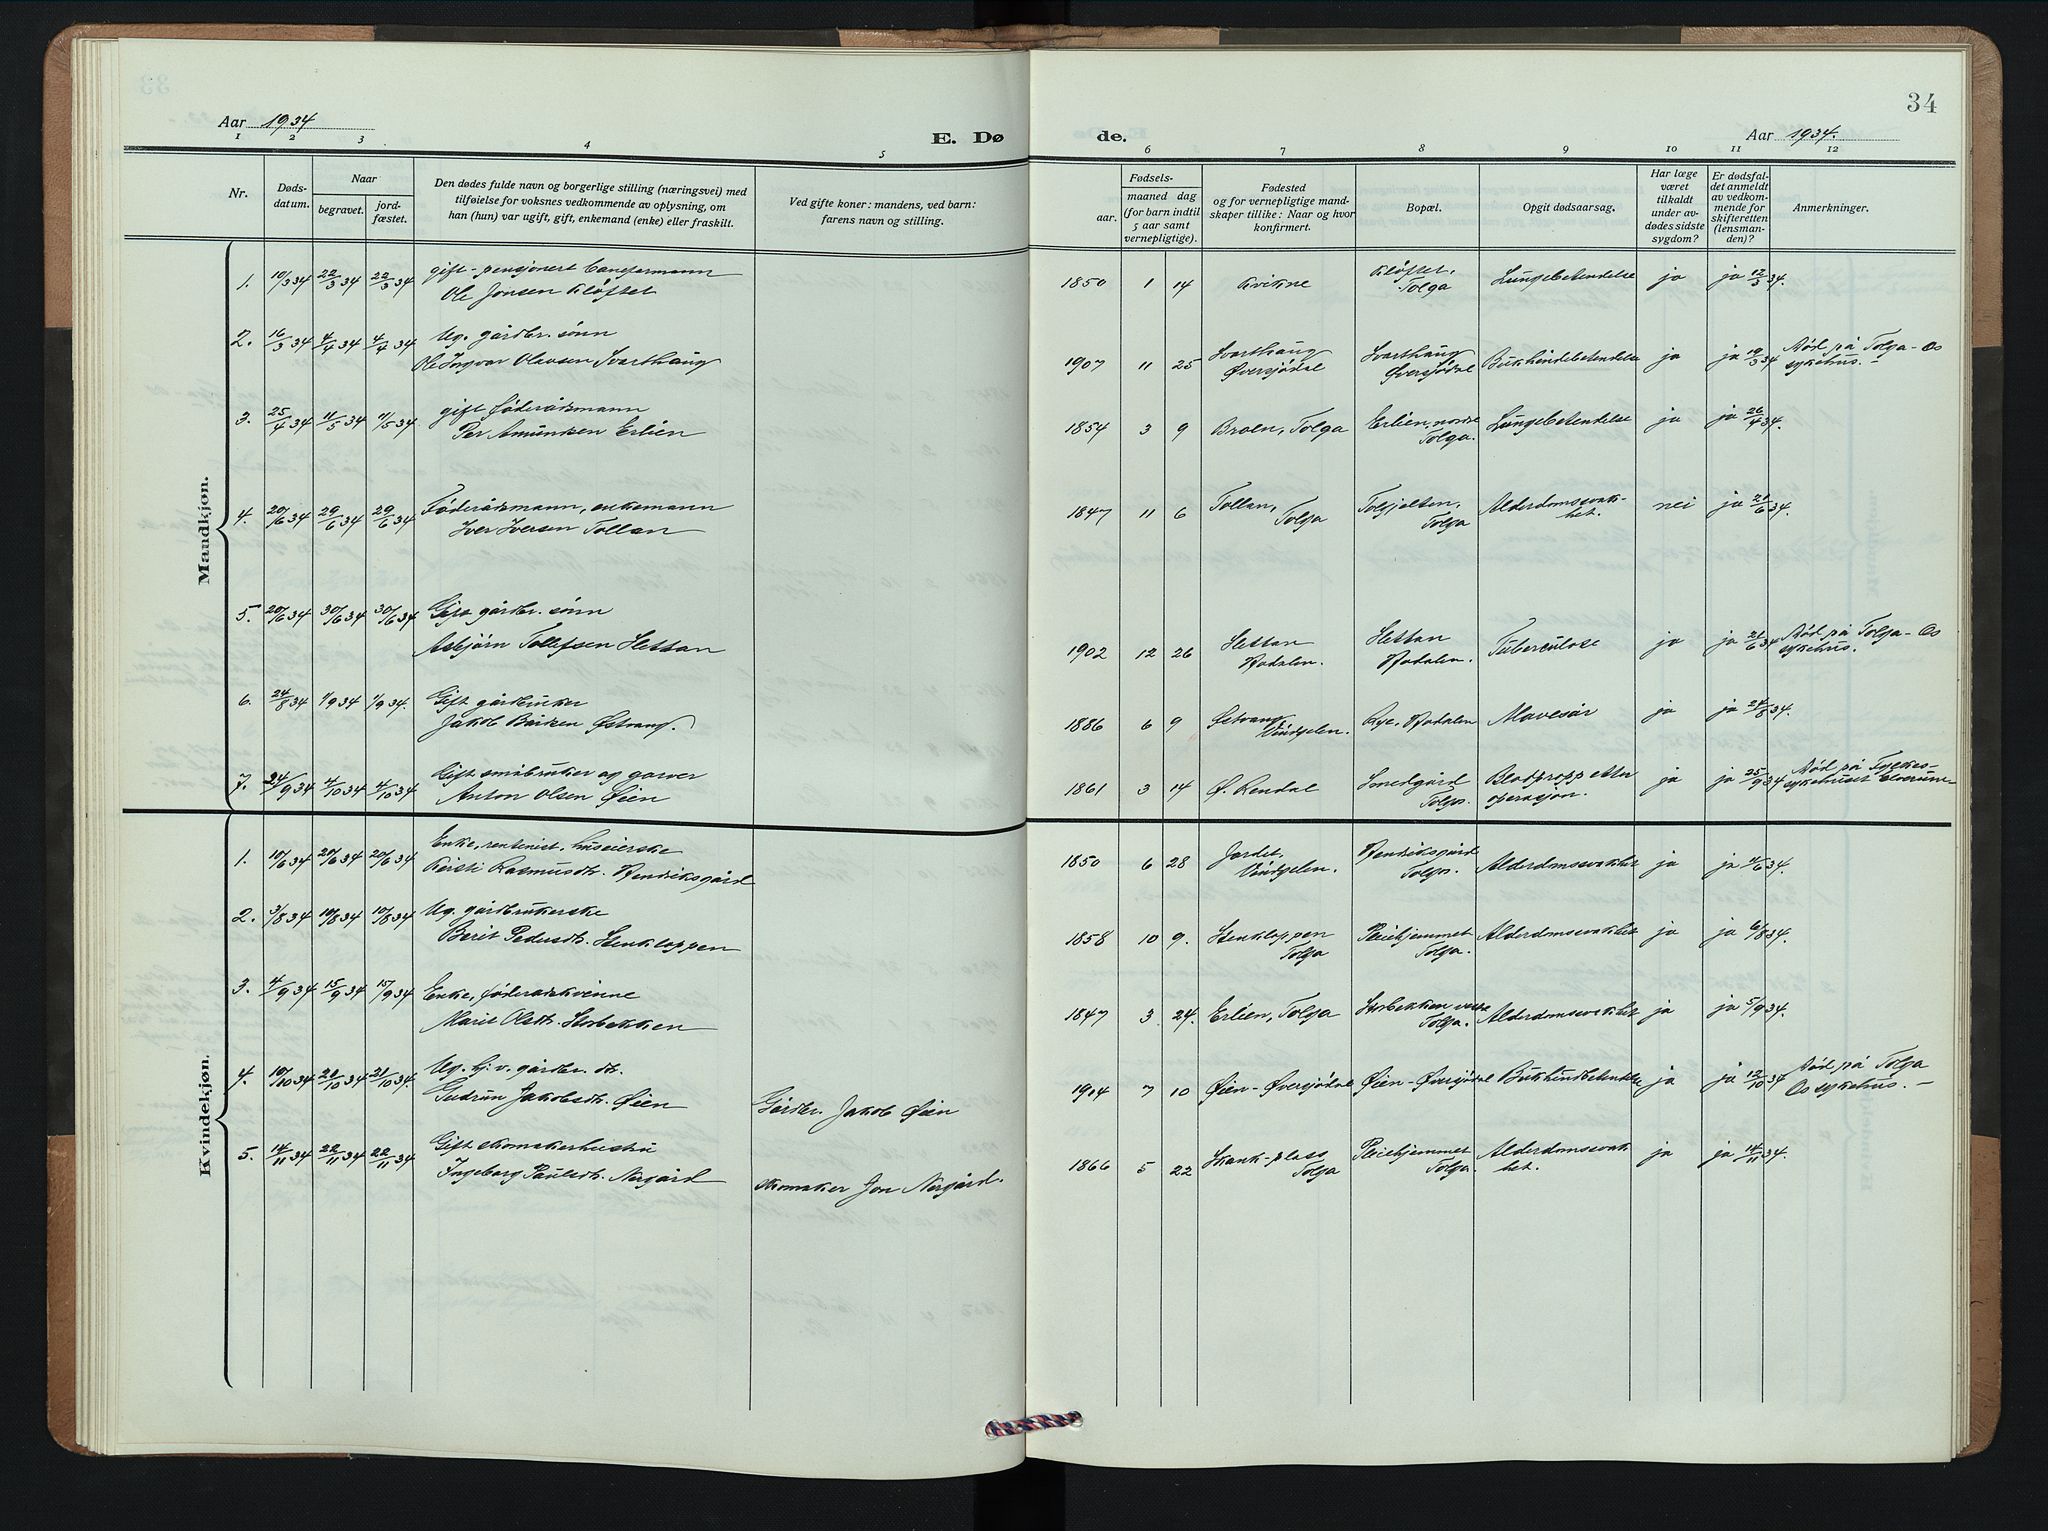 34
Aar 1934
E. Døde.
Aar 1934.
1 2 3 4 5 6 7 8 9 10 11 12
Nr.
Døds-
datum.
Naar
begravet.
jord-
fæstet.
Den dødes fulde navn og borgerlige stilling (næringsvei) med
tilføielse for voksnes vedkommende av oplysning, om
han (hun) var ugift, gift, enkemand (enke) eller fraskilt.
Ved gifte koner: mandens, ved barn:
farens navn og stilling.
Fødsels-
aar.
maaned dag
(for barn indtil
5 aar samt
vernepligtige).
Fødested
og for vernepligtige mand-
skaper tillike: Naar og hvor
konfirmert.
Bopæl.
Opgit dødsaarsag.
Har læge
været
tilkaldt
under av-
dødes sidste
sygdom?
Er dødsfal-
det anmeldt
av vedkom-
mende for
skifteretten
(lensman-
den)?
Anmerkninger.
Mandkjøn.
1. 10/3 34 22/3 34 22/3 34 gift - pensjonert baneformann 1850 1 14 Kvikne Kløftet, Lungebetendelse ja ja 12/3 34.
Ole Jonsen Kløftet Tolga
2. 16/3 34 4/4 34 4/4 34 Ug. gårdbr. sønn Svarthaug Svarthaug Død på Tolga-Os
Ole Ingvar Olavsen Svarthaug 1907 11 25 Øversjødal Øversjødal Bukhindebetendelse ja ja 19/3 34 sykehus.-
3. 25/4 34 11/5 34 11/5 34 gift føderådsmann 1854 3 9 Broen, Tolga Erlien, nordre Lungebetendelse ja ja 26/4 34.
Per Amundsen Erlien Tolga.
4. 20/6 34 29/6 34 29/6 34 Føderådsmann, enkemann 1847 11 6 Tollan, Alderdomssvak- nei ja 21/6 34.
Iver Iversen Tollan Tolga Tolga het.
5. 20/6 34 30/6 34 30/6 34 Gift gårdbr. sønn
Asbjørn Tollefsen Hettan 1902 12 26 Hettan Hettan Tuberculose ja ja 21/6 34 Død på Tolga-Os
Hodalen. Hodalen. sykehus.
6. 24/8 34 1/9 34 1/9 34. Gift gårdbruker
Jakob Bårdsen Østvang. 1886 6 9 Østvang Rye, Hodalen Mavesår ja ja 24/8 34.
Vingelen.
7. 24/9 34 4/10 34 4/10 34 Gift småbruker og garver 1861 3 14 Ø. Rendal Smedgård Blodpropp etter ja ja 25/9 34 Død på Fylkes-
Anton Olsen Øien Tolga. operasjon. sykehuset Elverum-
Kvindekjøn.
1. 10/6 34 20/6 34 20/6 34 Enke, rentenist, huseierske 1850 6 28 Jordet, Hendriksgård Alderdomssvakhet ja ja 11/6 34.
Kirsti Rasmusdt. Hendriksgård Vingelen. Tolga.
2. 3/8 34 10/8 34 10/8 34 Ug. gårdbrukerske 1858 10 9. Stenkloppen Pleiehjemmet Alderdomssvakhet ja ja 6/8 34.
Berit Pedersdt. Stenkloppen Tolga Tolga.
3. 4/9 34 15/9 34 15/9 34 Enke, føderådskvinne 1847 3 24. Erlien, Tolga Storbekken Alderdomssvakhet ja ja 5/9 34.
Marit Olsdt. Storbekken Tolga.
4. 10/10 34 21/10 34 21/10 34 Ug. hj. v. gårdbr. dt. 1904 7 10 Øien-Øversjødal Øien-Øversjødal Bukhindbetendelse ja ja 12/10 34 Død på Tolga
Gudrun Jakobsdt. Øien Gårdbr. Jakob Øien Os sykehus.-
5. 14/11 34 22/11 34 22/11 34 Gift skomakerhustru 1866 5 22 Skank-plass Pleiehjemmet Alderdomssvak ja ja 14/11 34.
Ingeborg Paulsdt. Nergård skomaker Jon Nergård. Tolga Tolga. het.